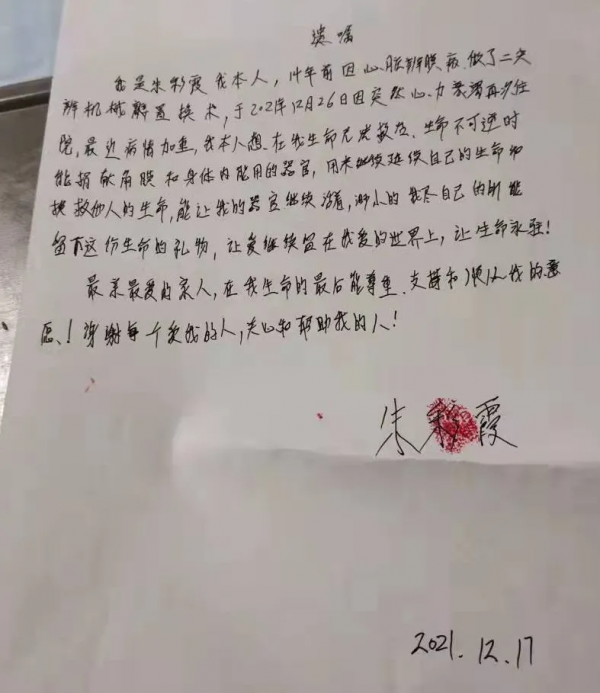 遗嘱
我是朱彩霞我本人，14年前因心脏瓣膜病.做了二尖
瓣机械瓣置换术，于2021年12月26日因突然心力衰竭再次住
院，最近病情加重，我本人想.在我生命无法救治.生命不可逆时
能捐献角膜和身体内能用的器官，用来继续延续自己的生命和
挽救他人的生命，能让我的器官继续活着，渺小的我尽自己的所能
留下这份生命的礼物，让爱继续留在我爱的世界上，让生命永驻！
最亲最爱的家人，在我生命的最后能尊重.支持和顺从我的意
愿、！谢谢每个爱我的人，关心和帮助我的人！
朱彩霞
2021.12.17